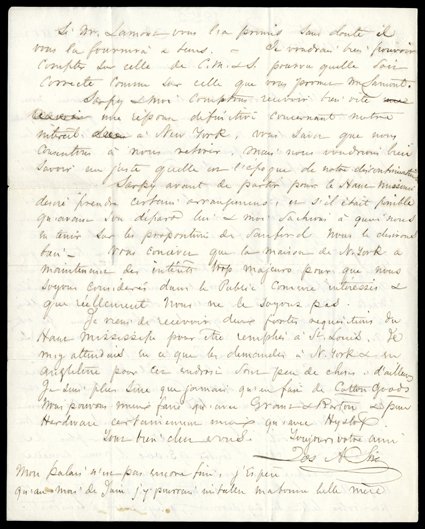 Si Mr. Lamont vous l'a promis sans doute il
vous la fournira a tems. - Je voudrais bien pouvoir
compter sur celle de C.M. & S. pourvu quelle soit
correcte comme sur celle que vous promet Mr Lamont.
Sarpy & moi comptons recevoir bien vite
une réponse définitive concernant notre
intérêt à New York, vous savez que nous
consentons à nous retirer, mais nous voudrions bien
savoir au juste quelle est l'époque de notre
Sarpy avant de partir pour le Haut Missouri
desire prendre certains arrangemens, et s'il était possible
qu'avant son départ lui & moi sachions à quoi nous
en tenir sur les propositions de Sanford nous le desirons
Vous concevez que la maison de N. York a
maintenant des intérêts trop majeurs pour que nous
soyons considérés dans le Public comme intéressés &
que réellement nous ne le soyons pas.
Je viens de recevoir deux fortes requisitions du
Haut Mississipi pour être remplies à St. Louis. Je
m'y attendais en ce que les demandes à N. York & en
Angleterre pour cet endroit sont peu de chose. d'ailleurs
Je suis plus sure que jamais qu'en fait de Cotton Goods
Nous pouvons mieux faire qu'avec Grant & Barton & pour
Hardware certainement mieux qu'avec Hyslop
Tout bien chez vous. Toujours votre ami
Jos. A. Sire
Mon palais n'est pas encore fini, j'espère
qu'au mois de Juin j'y pourrai installer ma bonne belle mère